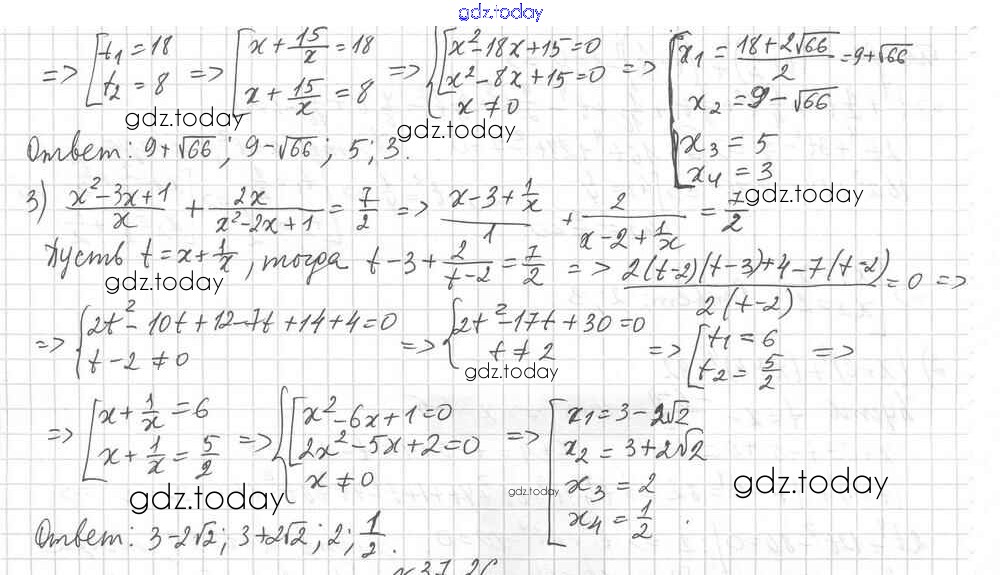 gdz.today
=> [t₁ = 18; t₂ = 8 => [x + 15/x = 18; x + 15/x = 8 => {[x² - 18x + 15 = 0; x² - 8x + 15 = 0; x ≠ 0 => [x₁ = (18 + 2√66)/2 = 9 + √66; x₂ = 9 - √66; x₃ = 5; x₄ = 3
gdz.today
gdz.today
Ответ: 9 + √66; 9 - √66; 5; 3.
gdz.today
3) (x² - 3x + 1)/x + 2x/(x² - 2x + 1) = 7/2 => (x - 3 + 1/x)/1 + 2/(x - 2 + 1/x) = 7/2
Пусть t = x + 1/x, тогда t - 3 + 2/(t - 2) = 7/2 => (2(t-2)(t-3) + 4 - 7(t-2))/(2(t-2)) = 0 =>
gdz.today
=> {2t² - 10t + 12 - 7t + 14 + 4 = 0; t - 2 ≠ 0 => {2t² - 17t + 30 = 0; t ≠ 2 => [t₁ = 6; t₂ = 5/2 =>
gdz.today
=> [x + 1/x = 6; x + 1/x = 5/2 => {[x² - 6x + 1 = 0; 2x² - 5x + 2 = 0; x ≠ 0 => [x₁ = 3 - 2√2; x₂ = 3 + 2√2; x₃ = 2; x₄ = 1/2.
gdz.today
gdz.today
gdz.today
Ответ: 3 - 2√2; 3 + 2√2; 2; 1/2.